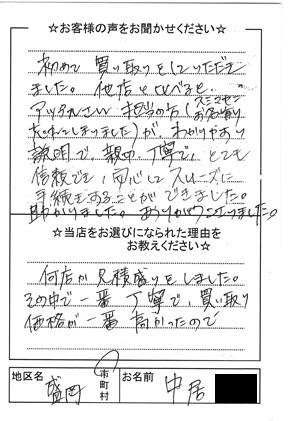 ☆お客様の声をお聞かせください☆
初めて買い取りをしていただき
ました。他店とくらべると、
アップルさん 担当の方(スミマセン お名前
忘れてしまいました)が、わかりやすい
説明で、親切、丁寧で、とても
信頼でき、安心してスムーズに
手続きをすることができました。
助かりました。ありがとうございました。
☆当店をお選びになられた理由を
お教えください☆
何店か見積盛りをしました。
その中で一番 丁寧で、買い取り
価格が一番 高かったので
地区名 盛岡 市町村 お名前 中居